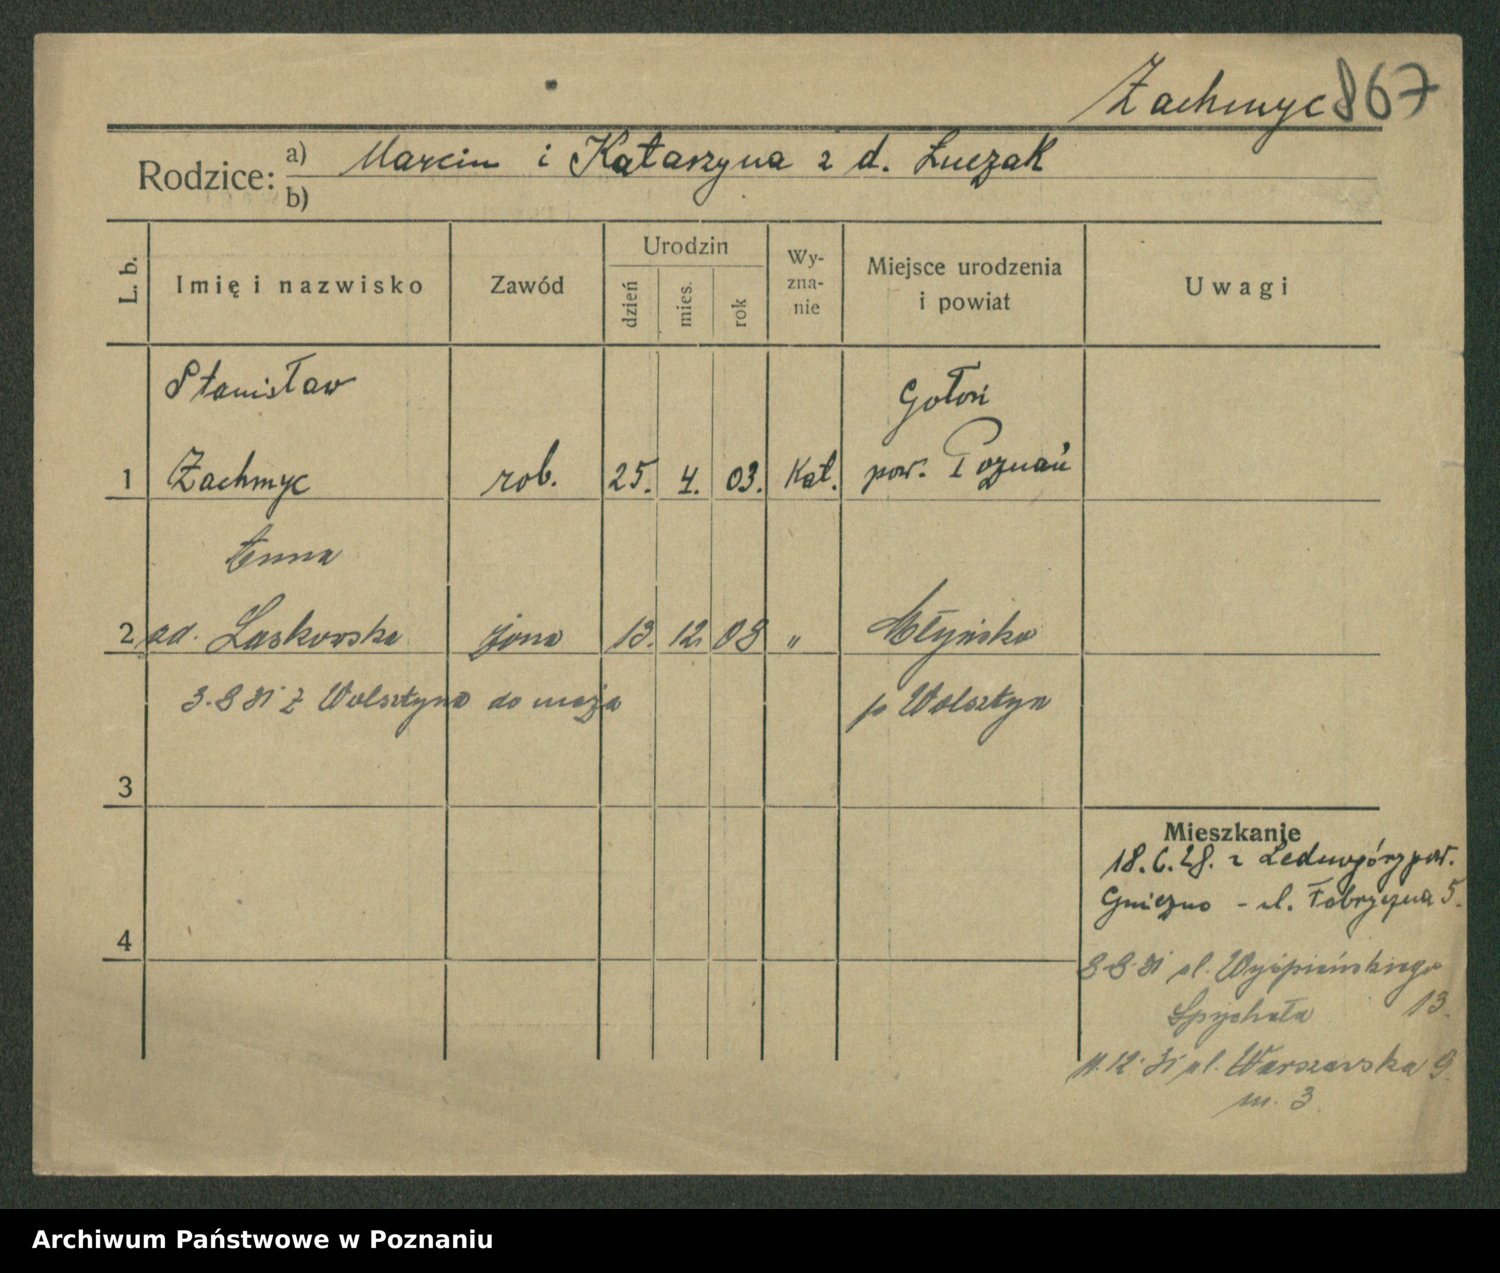 Zachmyc 867
Rodzice: a) Marcin i Katarzyna z d. Łuczak
b)
L. b.
Imię i nazwisko
Zawód
Urodzin
dzień
mies.
rok
Wy-
zna-
nie
Miejsce urodzenia
i powiat
Uwagi
Stanisław
Gołuń
1 Zachmyc rob. 25. 4. 03. Kat. pow. Poznań
Anna
2 zd. Laskowska żona 13. 12. 08 " Młyńsko
3.8 31 z Wolsztyna do męża p Wolsztyn
3
Mieszkanie
18.6.28. z Lednogóry pow.
Gniezno - ul. Fabryczna 5.
4
8 8 31 ul. Wyspiańskiego
Spychała 13.
11.12.31 ul. Warszawska 9.
m. 3
Archiwum Państwowe w Poznaniu